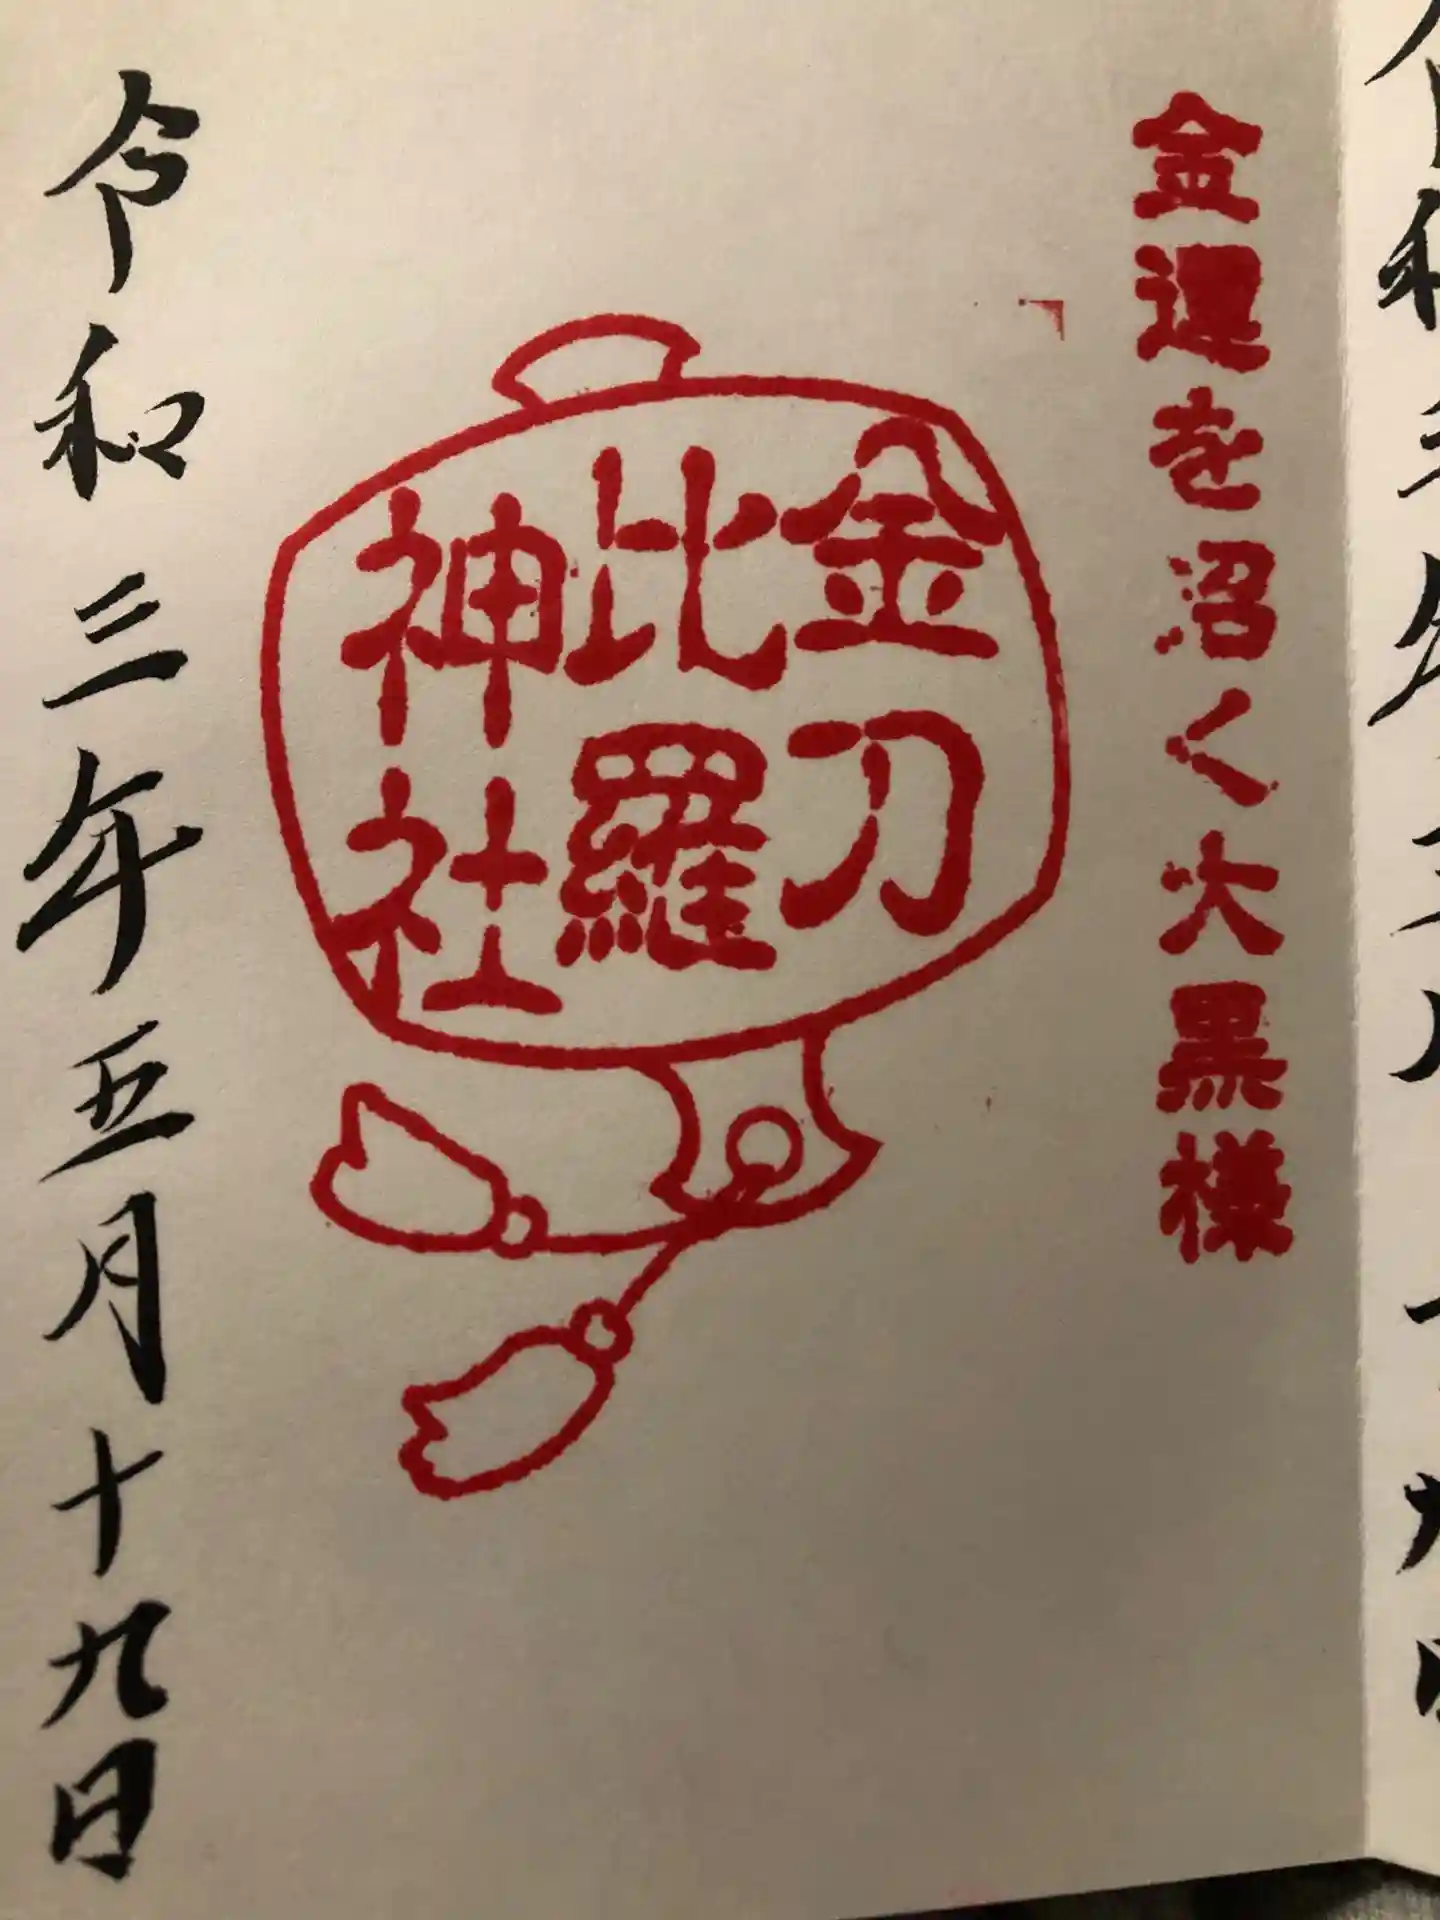 金運を沼く大黒様
金刀
比羅
神社
令和三年五月十九日